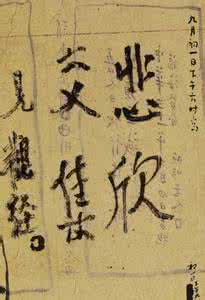 九月初一日下午六时寫
悲欣
交集
見觀經。